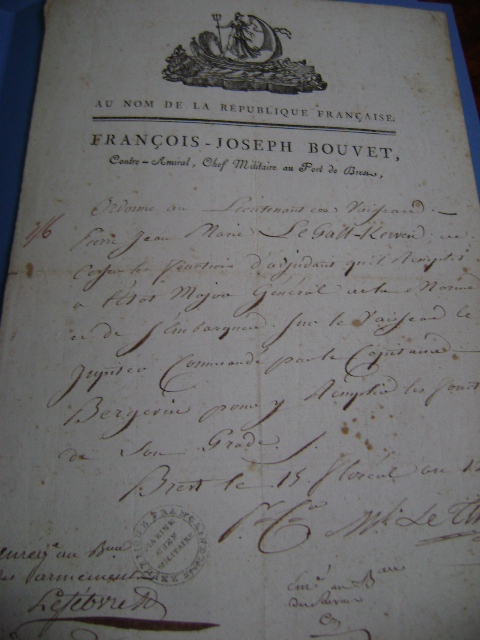 AU NOM DE LA RÉPUBLIQUE FRANÇAISE.
FRANÇOIS-JOSEPH BOUVET,
Contre-Amiral, Chef Militaire au Port de Brest,
Ordonne au Lieutenant de Vaisseau
Pierre Jean Marie Le Gall-Kerven de
Cesser les fonctions d'adjudant qu'il Remplit
a l'état Major Général de la Marine
et de S'embarquer Sur le Vaisseau le
Jupiter Commandé par le Capitaine
Bergevin pour y Remplir les fonct
de Son Grade.
Brest le 15 floreal an 12
enreg. au Bau
des armements
Lefebvre
MARINE
CHEF
MILITAIRE